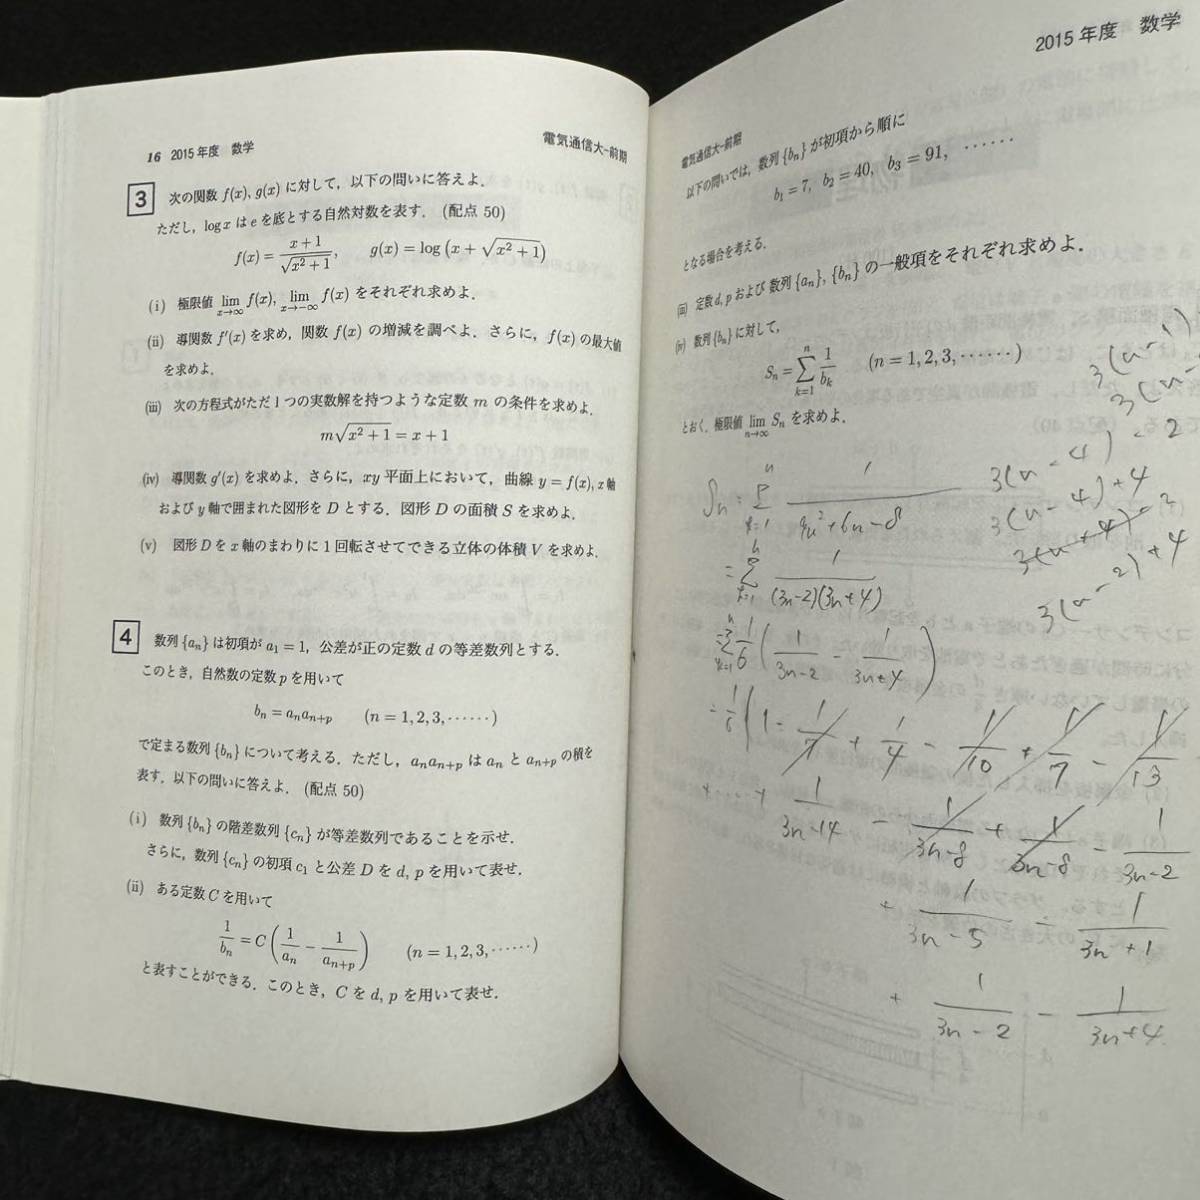 16 2015年度 数学
電気通信大-前期
3 次の関数 f(x), g(x) に対して，以下の問いに答えよ．
ただし，log x は e を底とする自然対数を表す．(配点 50)
f(x) = (x+1)/√(x²+1),  g(x) = log(x + √(x²+1))
(i) 極限値 lim_{x→∞} f(x), lim_{x→-∞} f(x) をそれぞれ求めよ．
(ii) 導関数 f′(x) を求め，関数 f(x) の増減を調べよ．さらに，f(x) の最大値
を求めよ．
(iii) 次の方程式がただ1つの実数解を持つような定数 m の条件を求めよ．
m√(x²+1) = x+1
(iv) 導関数 g′(x) を求めよ．さらに，xy 平面上において，曲線 y = f(x), x 軸
および y 軸で囲まれた図形を D とする．図形 D の面積 S を求めよ．
(v) 図形 D を x 軸のまわりに1回転させてできる立体の体積 V を求めよ．
4 数列 {aₙ} は初項が a₁ = 1，公差が正の定数 d の等差数列とする．
このとき，自然数の定数 p を用いて
bₙ = aₙaₙ₊ₚ  (n = 1, 2, 3, ······)
で定まる数列 {bₙ} について考える．ただし，aₙaₙ₊ₚ は aₙ と aₙ₊ₚ の積を
表す．以下の問いに答えよ．(配点 50)
(i) 数列 {bₙ} の階差数列 {cₙ} が等差数列であることを示せ．
さらに，数列 {cₙ} の初項 c₁ と公差 D を d, p を用いて表せ．
(ii) ある定数 C を用いて
1/bₙ = C(1/aₙ - 1/aₙ₊ₚ)  (n = 1, 2, 3, ······)
と表すことができる．このとき，C を d, p を用いて表せ．
2015年度 数学
電気通信大-前期
以下の問いでは，数列 {bₙ} が初項から順に
b₁ = 7, b₂ = 40, b₃ = 91, ······
となる場合を考える．
(iii) 定数 d, p および数列 {aₙ}, {bₙ} の一般項をそれぞれ求めよ．
(iv) 数列 {bₙ} に対して，
Sₙ = Σ_{k=1}^{n} 1/bₖ  (n = 1, 2, 3, ······)
とおく．極限値 lim_{n→∞} Sₙ を求めよ．
3(n-1)
3(n-
3(n-4)-2
3(n-4)+4
3(n+4)-2
3(n-2)+4
1/(9n²+6n-8)
= Σ_{k=1}^{n} 1/((3n-2)(3n+4))
= Σ_{k=1}^{n} 1/6 (1/(3n-2) - 1/(3n+4))
= 1/6 (1 - 1/7 + 1/4 - 1/10 + 1/7 - 1/13
+ ···· + 1/(3n-14) - 1/(3n-8) + 1/(3n-8) - 1/(3n-2)
+ 1/(3n-5) - 1/(3n+1)
+ 1/(3n-2) - 1/(3n+4)